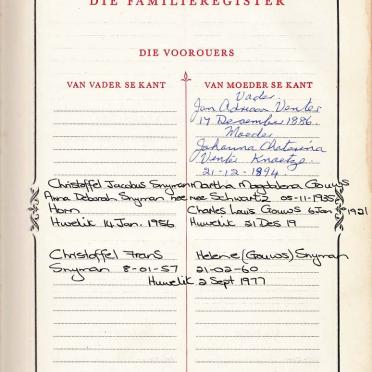 DIE FAMILIEREGISTER
DIE VOOROUERS
VAN VADER SE KANT
VAN MOEDER SE KANT
Vader.
Jan Adriaan Venter
17 Desember 1886.
Moeder
Johanna Chatarina
Venter Knoetze.
21-12-1894
Christoffel Jacobus Snyman
Anna Deborah Snyman nee
Horn
Huwelik 14 Jan. 1956
Martha Magdalena Gouws
nee Schwartz 05-11-1935
Charles Louis Gouws 6 Jan 1921
Huwelik 21 Des 19
Christoffel Frans
Snyman 8-01-57
Helene (Gouws) Snyman
21-02-60
Huwelik 2 Sept 1977